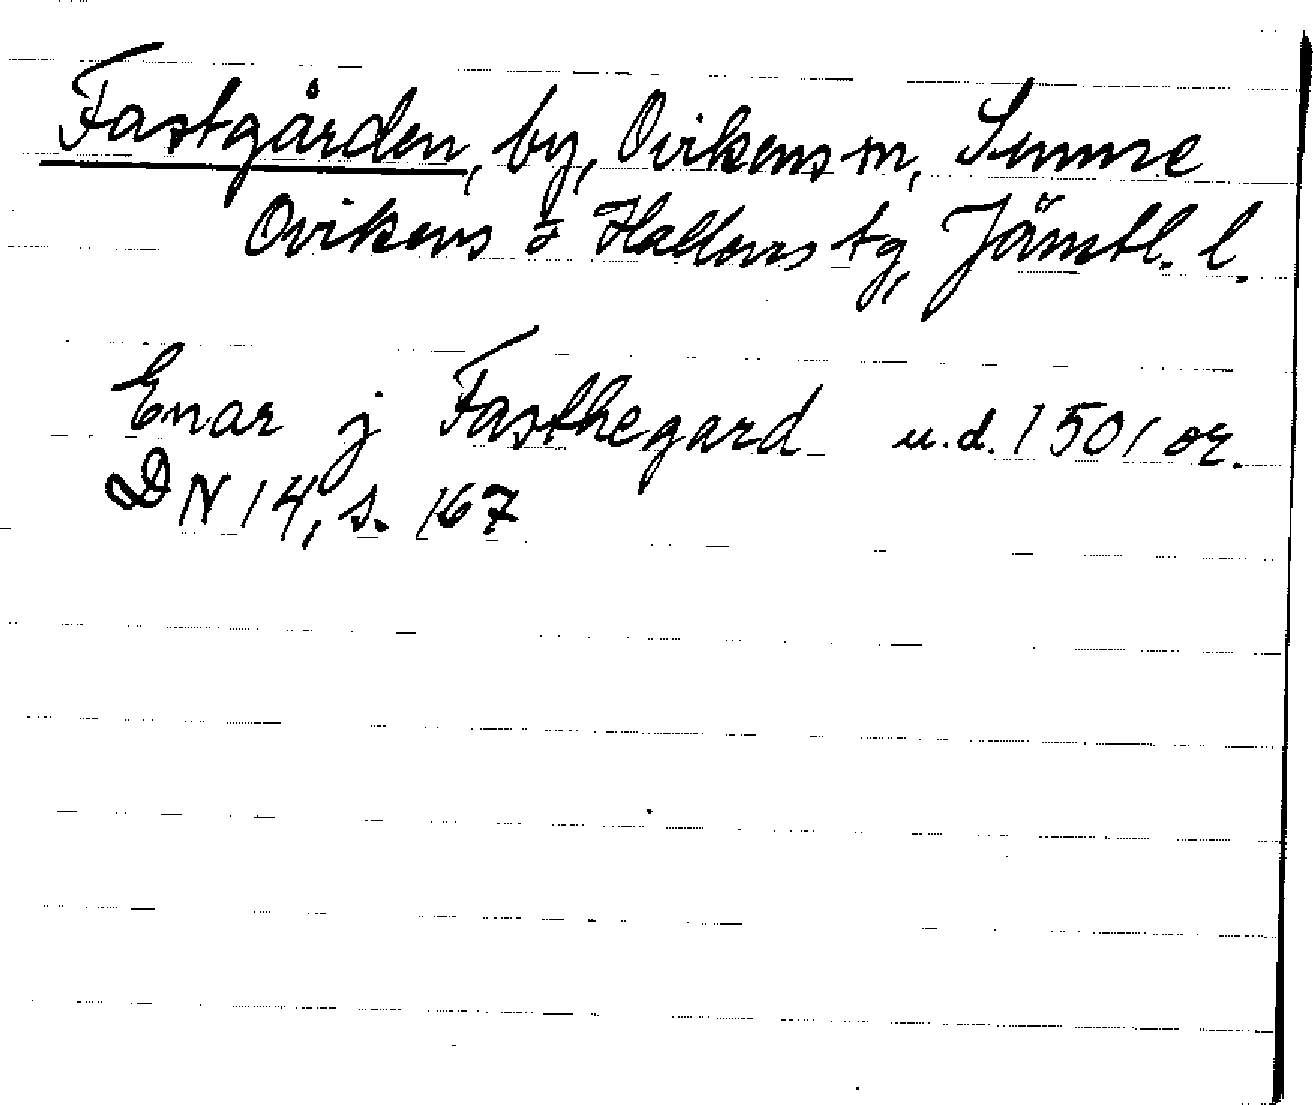 Fastgården, by, Ovikens sn, Sunne
Ovikens o Hallens tg, Jämtl. l.
Enar j Fasthegard u.d. 1501 or.
DN 14, s. 167